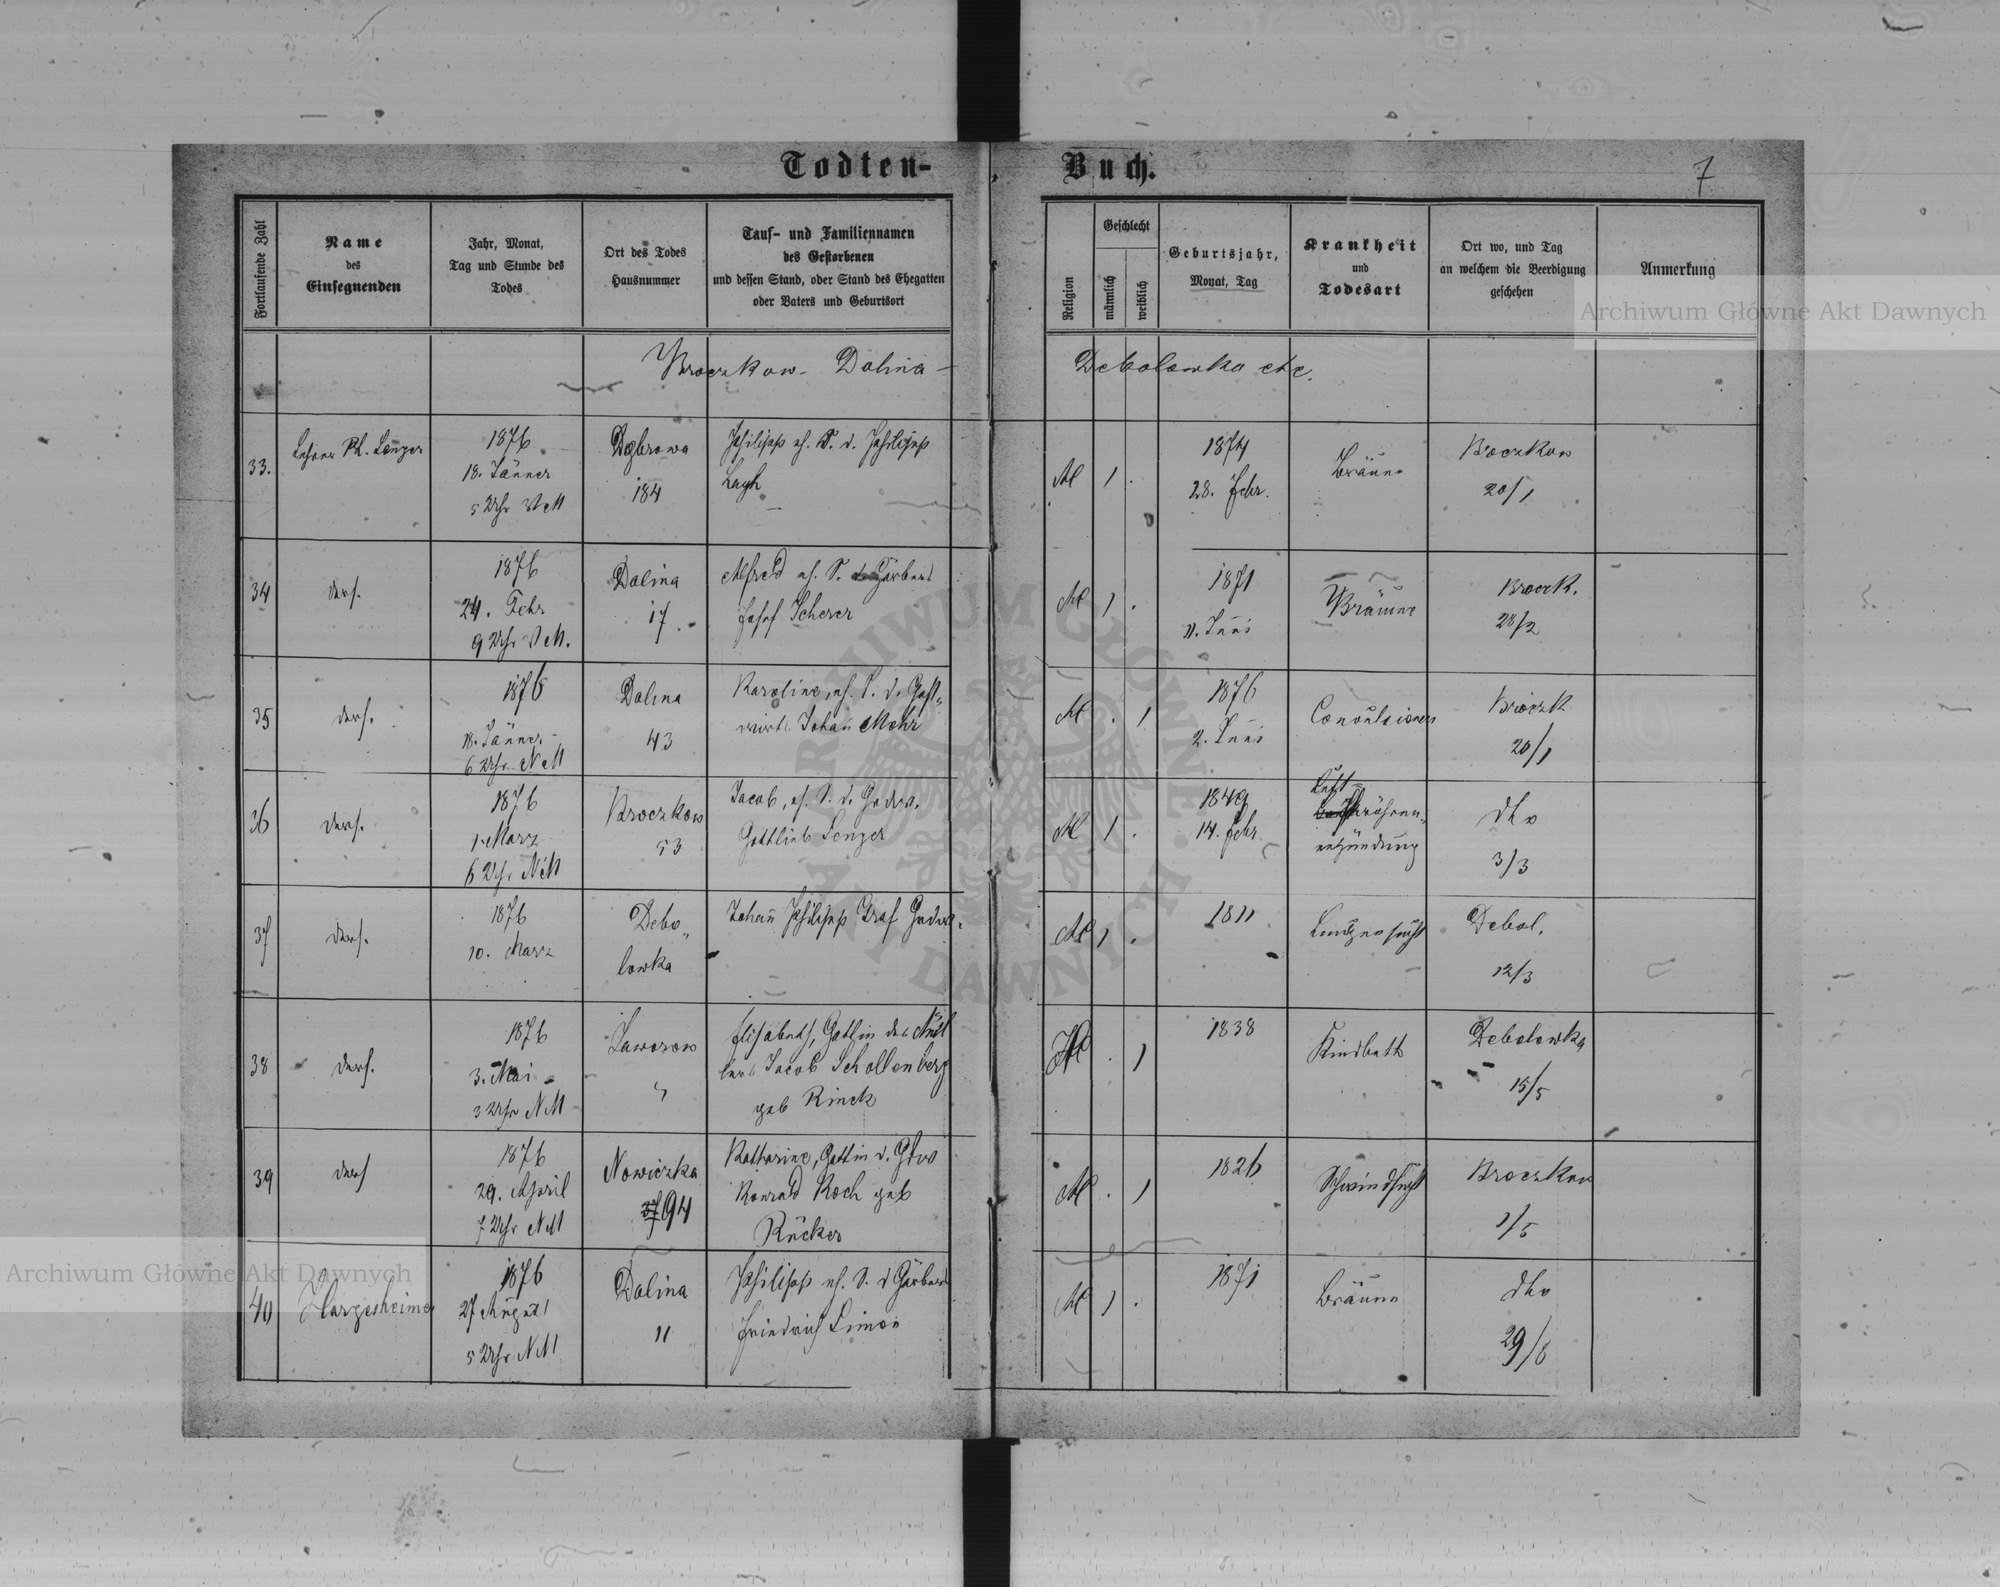 Todten-Buch.
7
Fortlaufende Zahl
Name
des
Einsegnenden
Jahr, Monat,
Tag und Stunde des
Todes
Ort des Todes
Hausnummer
Tauf- und Familiennamen
des Gestorbenen
und dessen Stand, oder Stand des Ehegatten
oder Vaters und Geburtsort
Religion
Geschlecht
männlich
weiblich
Geburtsjahr,
Monat, Tag
Krankheit
und
Todesart
Ort wo, und Tag
an welchem die Beerdigung
geschehen
Anmerkung
Broczkow- Dolina - Debolowka etc.
33.
Lehrer Ph. Lenger
1876
18. Jänner
5 Uhr
Dąbrowa
184
Philipp eh. S. d. Philipp
1 .
1874
28. Febr.
Bräune
Broczkow
20/1
34
ders.
1876
24. Febr
9 Uhr
Dolina
17.
Alfred eh. S. Gärbers
Josef Scherer
1 .
1871
11. Juni
Bräune
Broczk.
28/2
35
ders.
1876
18. Jänner
6 Uhr NM
Dolina
43
Karoline, eh. T. d. Gast-
wirts Johan Mohr
. 1
1876
2. Juni
Convulsionen
Broczk
20/1
36
ders.
1876
1. März
6 Uhr NM
Broczkow
53
Jacob, eh. S. d. Grdw.
Gottlieb Lenger
1 .
1849
14. Febr
Luft-
röhren-
entzündung
dto
3/3
37
ders.
1876
10. März
Debo-
lowka
Johan Philipp Graf
1 .
1811
Lungensucht
Debol.
12/3
38
ders.
1876
3. Mai
3 Uhr NM
Jaworow
Elisabeth, Gattin des Mül
lers Jacob Schollenberg
geb Rinck
. 1
1838
Kindbett
Debolowka
15/5
39
ders
1876
29. April
7 Uhr NM
Nowiczka
94
Katharine, Gattin d.
Konrad Koch geb
Rücker
. 1
1826
Schwindsucht
Broczkow
1/5
40
Hargesheimer
1876
27 August
5 Uhr NM
Dolina
11
Philipp eh. S. d Gärbers
Friedrich Simon
1 .
1871
Bräune
dto
29/8
Archiwum Główne Akt Dawnych
Archiwum Główne Akt Dawnych
ARCHIWUM GŁÓWNE AKT DAWNYCH